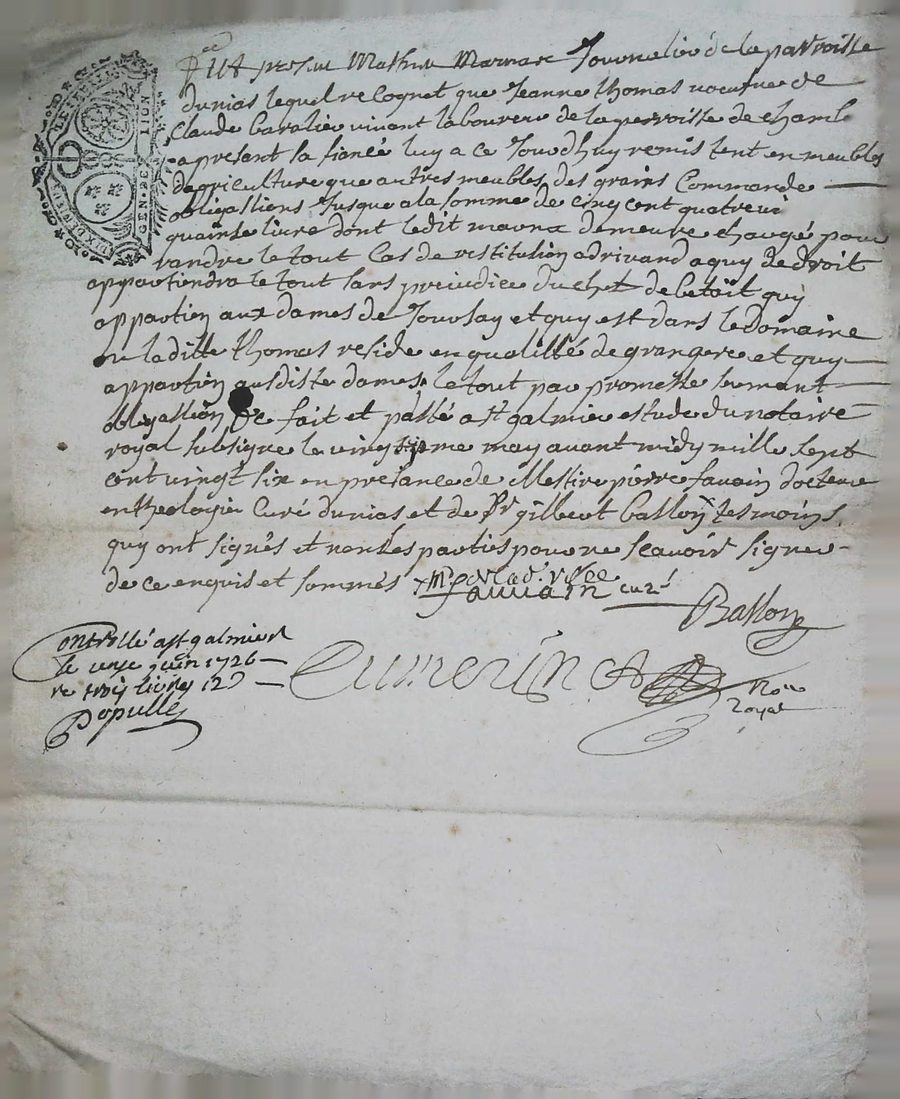 Fut present Mathieu Marnax Journalié de la parroisse
dunias lequel recognet que Jeanne thomas voeufve de
Claude baralié vivant laboureu de la perroisse de chambe
apresant sa fiancé luy a ce Jourdhuy remis tent en meubles
dagriculture que autres meubles des grains Commande
obligassiens Jusque a la somme de cinq cent quatrevi
quainse livre dont ledit marnax demeure chargé pour
randre le tout Cas de restitution adrivand a quy de droit
appartiendra le tout sans preiudice du chet de betait quy
appartien aux dames de Jourssay et quy est dans le domaine
ou laditte thomas reside en qualitté de grangere et quy
appartien ausditte dames, le tout par promesse sermant
obligassion &c fait et passé a st galmie estude du notaire
royal subsigne le vingt me may avant midy mille sept
cent vingt six en presance de Messire pierre favain docteur
en theologie Curé dunias et de Sr gilbert balloy tesmoins
quy ont signés et non les parties pour ne scavoir signer
de ce enquis et sommés
fauvain curé
Balloy
Controllé a st galmier
le unse juin 1726
re trois livres 12 d
Populle
Cumerin
No re
Royal
GEN DE LION